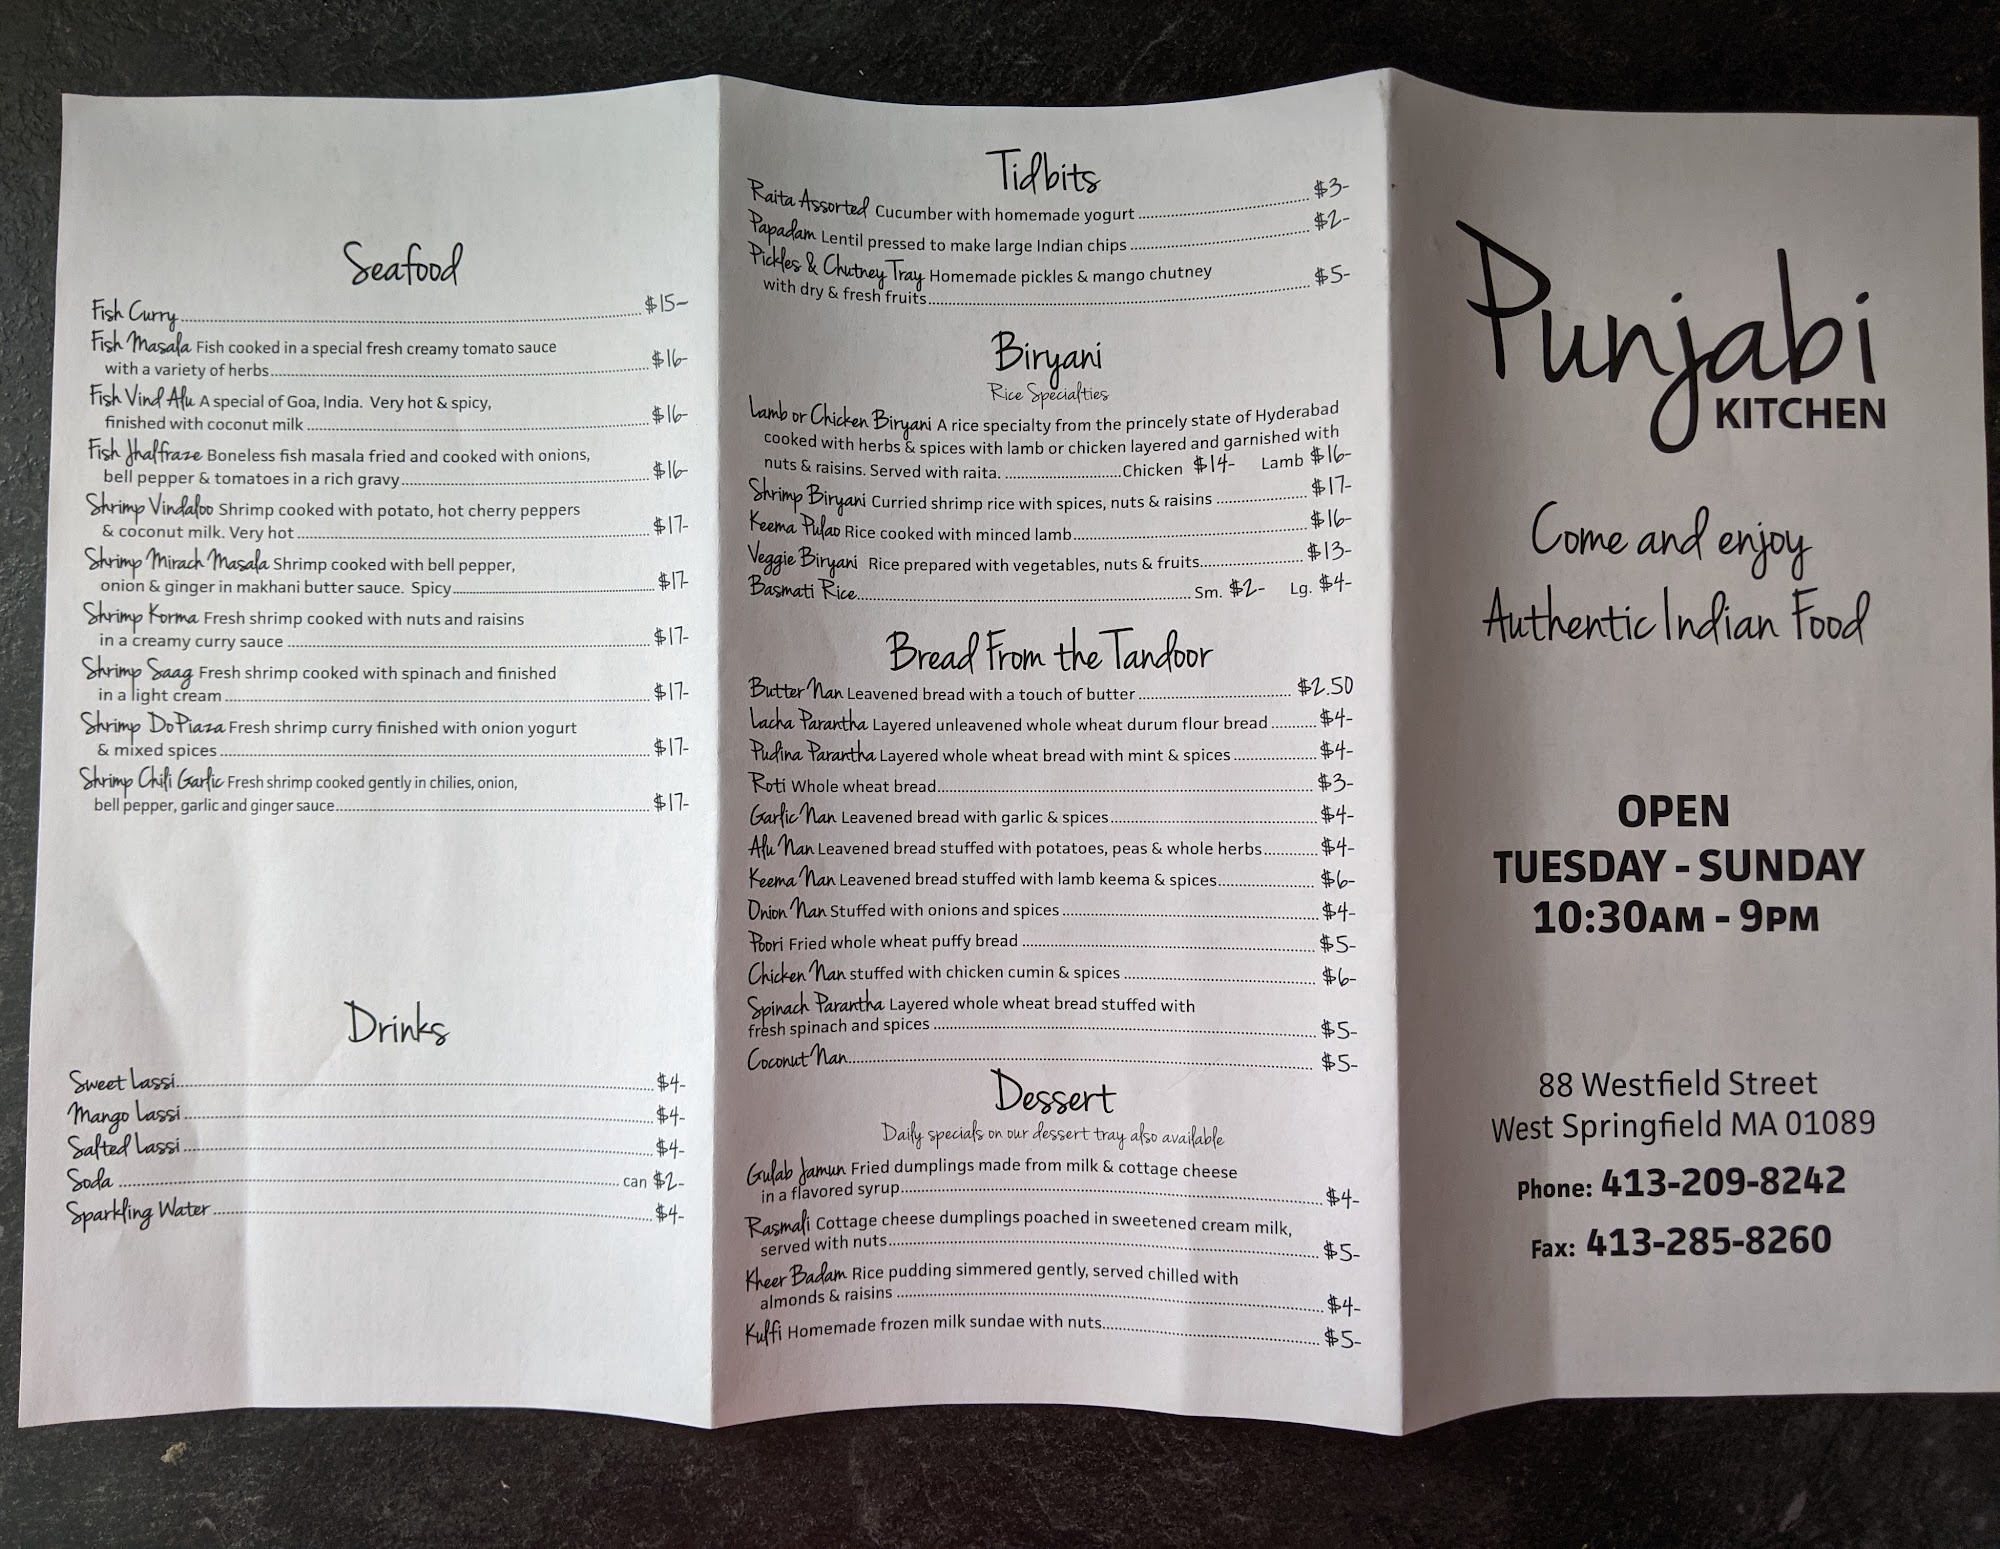 Seafood
Fish Curry $15-
Fish Masala Fish cooked in a special fresh creamy tomato sauce
with a variety of herbs $16-
Fish Vind Alu A special of Goa, India. Very hot & spicy,
finished with coconut milk $16-
Fish Jhalfraze Boneless fish masala fried and cooked with onions,
bell pepper & tomatoes in a rich gravy $16-
Shrimp Vindaloo Shrimp cooked with potato, hot cherry peppers
& coconut milk. Very hot $17-
Shrimp Mirach Masala Shrimp cooked with bell pepper,
onion & ginger in makhani butter sauce. Spicy $17-
Shrimp Korma Fresh shrimp cooked with nuts and raisins
in a creamy curry sauce $17-
Shrimp Saag Fresh shrimp cooked with spinach and finished
in a light cream $17-
Shrimp DoPiaza Fresh shrimp curry finished with onion yogurt
& mixed spices $17-
Shrimp Chili Garlic Fresh shrimp cooked gently in chilies, onion,
bell pepper, garlic and ginger sauce $17-
Drinks
Sweet Lassi $4-
Mango Lassi $4-
Salted Lassi $4-
Soda can $2-
Sparkling Water $4-
Tidbits
Raita Assorted Cucumber with homemade yogurt $3-
Papadam Lentil pressed to make large Indian chips $2-
Pickles & Chutney Tray Homemade pickles & mango chutney
with dry & fresh fruits $5-
Biryani
Rice Specialties
Lamb or Chicken Biryani A rice specialty from the princely state of Hyderabad
cooked with herbs & spices with lamb or chicken layered and garnished with
nuts & raisins. Served with raita. Chicken $14- Lamb $16-
Shrimp Biryani Curried shrimp rice with spices, nuts & raisins $17-
Keema Pulao Rice cooked with minced lamb $16-
Veggie Biryani Rice prepared with vegetables, nuts & fruits $13-
Basmati Rice Sm. $2- Lg. $4-
Bread From the Tandoor
Butter Nan Leavened bread with a touch of butter $2.50
Lacha Parantha Layered unleavened whole wheat durum flour bread $4-
Pudina Parantha Layered whole wheat bread with mint & spices $4-
Roti Whole wheat bread $3-
Garlic Nan Leavened bread with garlic & spices $4-
Alu Nan Leavened bread stuffed with potatoes, peas & whole herbs $4-
Keema Nan Leavened bread stuffed with lamb keema & spices $6-
Onion Nan Stuffed with onions and spices $4-
Poori Fried whole wheat puffy bread $5-
Chicken Nan stuffed with chicken cumin & spices $6-
Spinach Parantha Layered whole wheat bread stuffed with
fresh spinach and spices $5-
Coconut Nan $5-
Dessert
Daily specials on our dessert tray also available
Gulab Jamun Fried dumplings made from milk & cottage cheese
in a flavored syrup $4-
Rasmali Cottage cheese dumplings poached in sweetened cream milk,
served with nuts $5-
Kheer Badam Rice pudding simmered gently, served chilled with
almonds & raisins $4-
Kulfi Homemade frozen milk sundae with nuts $5-
Punjabi
KITCHEN
Come and enjoy
Authentic Indian Food
OPEN
TUESDAY - SUNDAY
10:30AM - 9PM
88 Westfield Street
West Springfield MA 01089
Phone: 413-209-8242
Fax: 413-285-8260